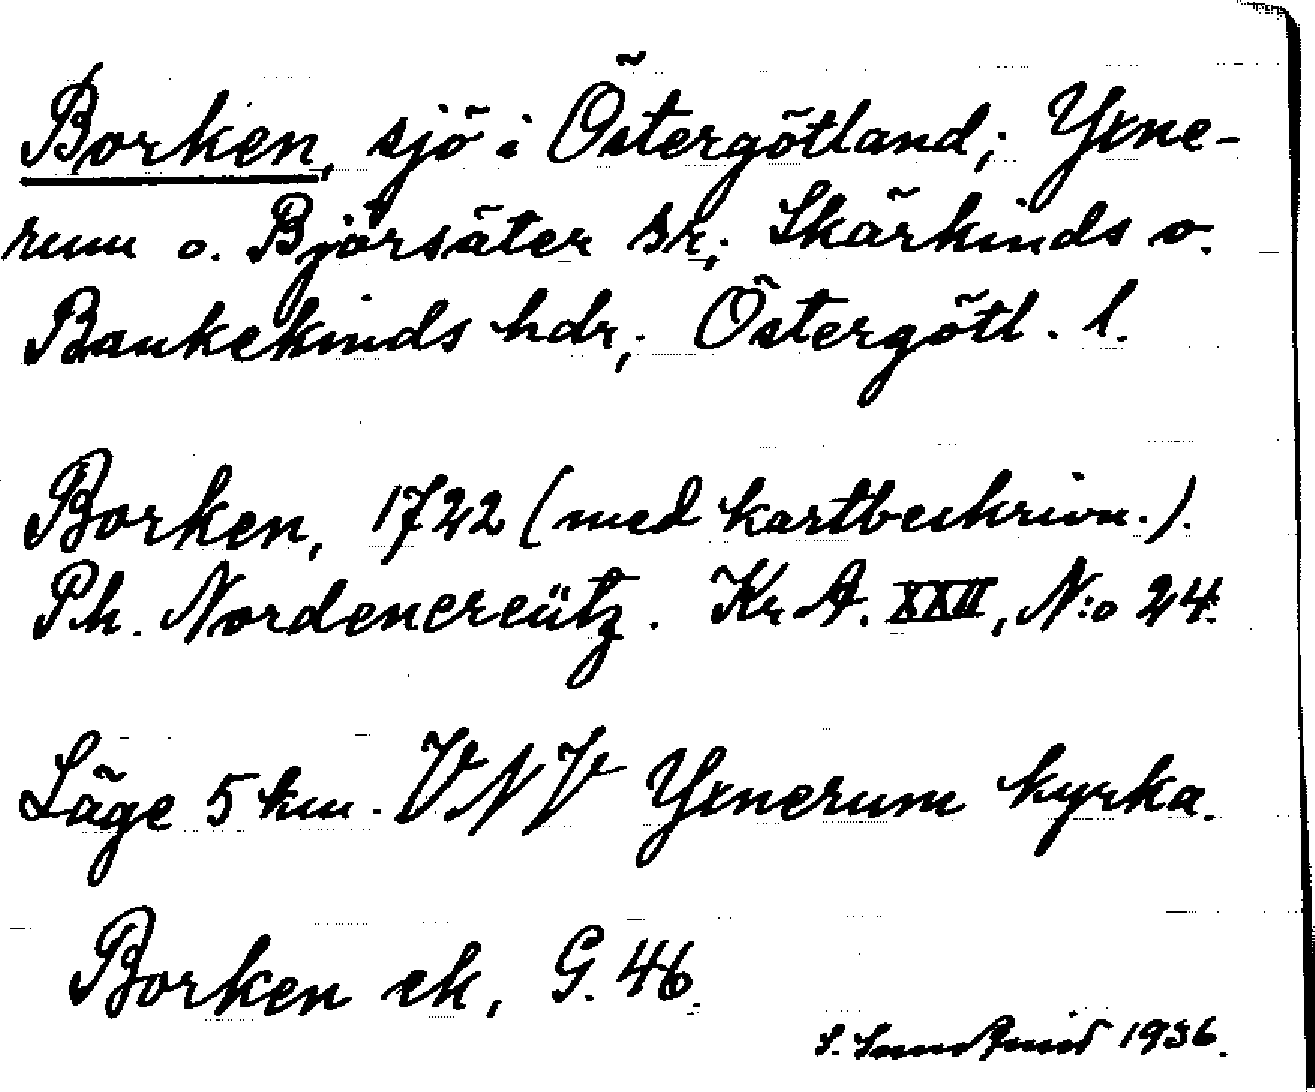 Borken, sjö i Östergötland; Yxne-
rum o. Björsäter sr; Skärkinds o.
Bankekinds hdr; Östergötl. l.
Borken, 1722 (med kartbeskrivn.).
Ph. Nordencreütz. Kr. A. XXII, N:o 24.
Läge 5 km. VNV Yxnerum kyrka.
Borken ek, G. 46.
S. 1936.